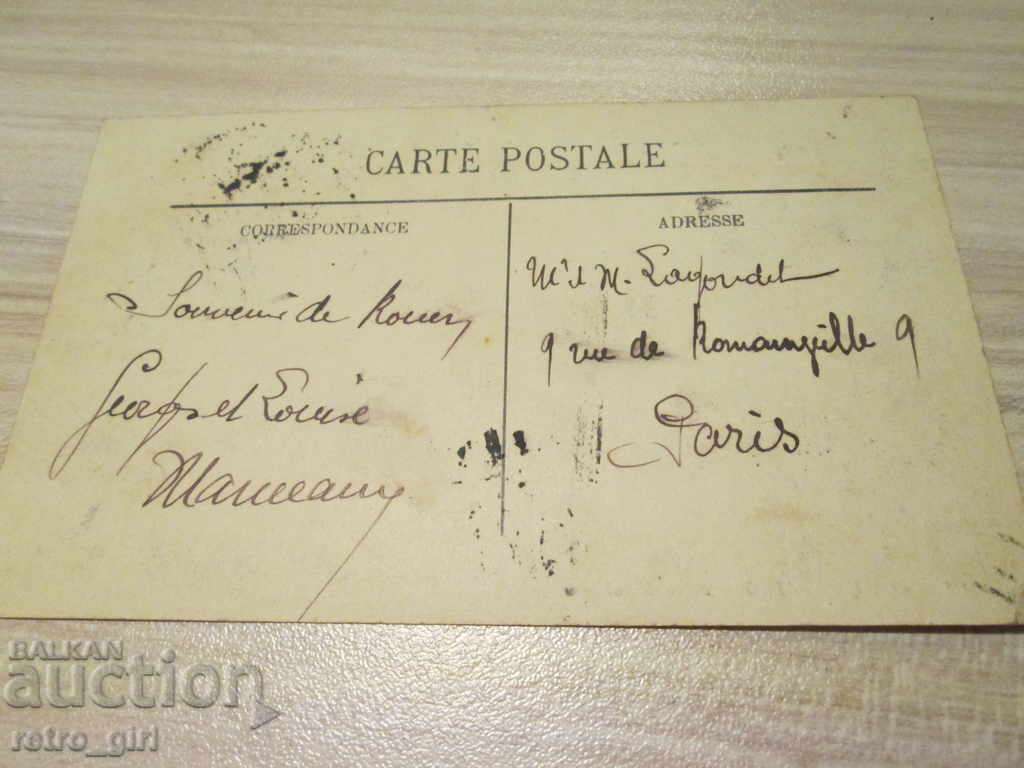 CARTE POSTALE
CORRESPONDANCE
Souvenir de Rouen
Georges et Louise
ADRESSE
Mr et M.
9 rue de Romainville 9
Paris
BALKAN
auction
retro_girl